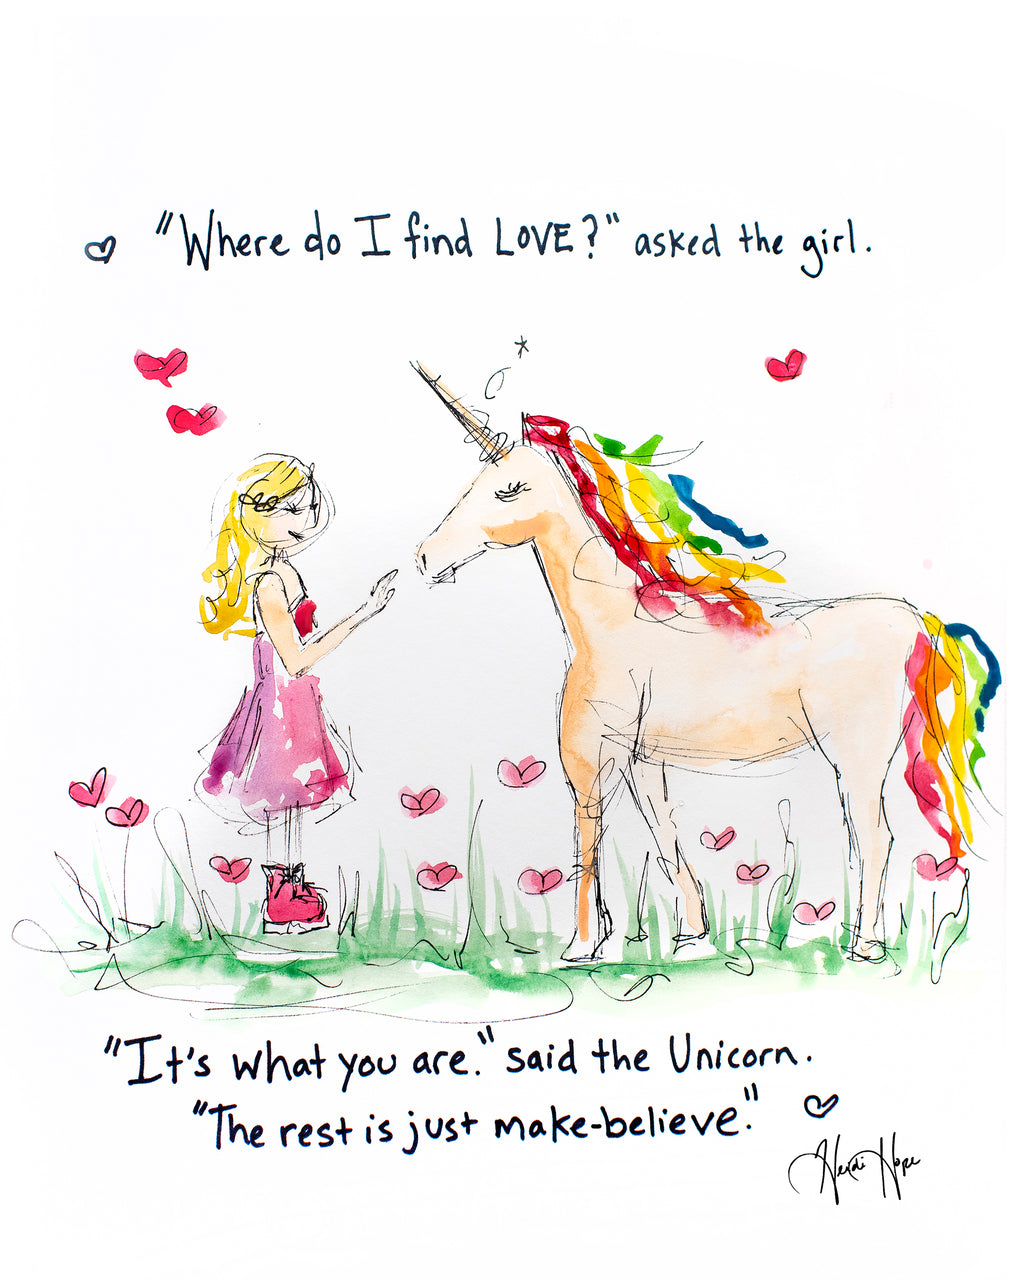 "Where do I find LOVE?" asked the girl.
"It's what you are." said the Unicorn.
"The rest is just make-believe."
Heidi Hope